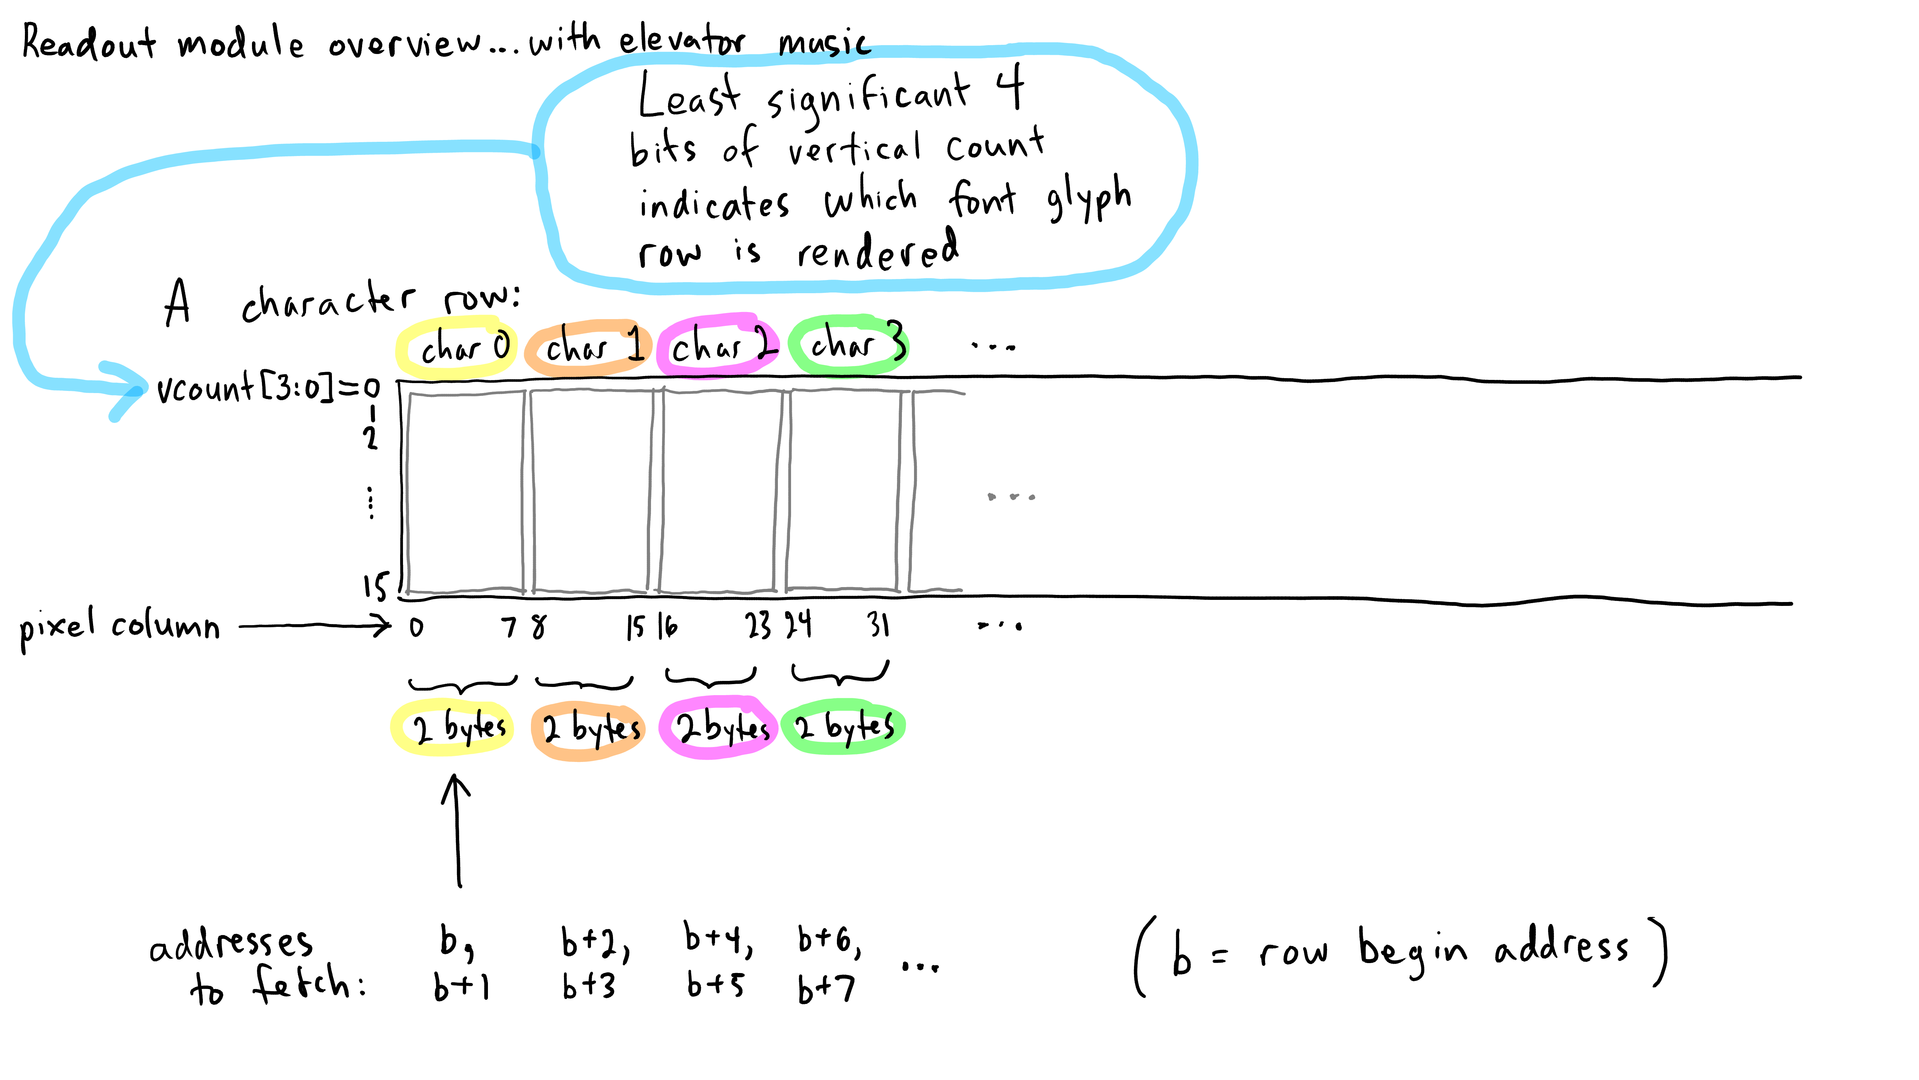 Readout module overview... with elevator music
Least significant 4
bits of vertical count
indicates which font glyph
row is rendered
A character row:
char 0 char 1 char 2 char 3 ...
vcount[3:0]=0
1
2
⋮
15
pixel column → 0 7 8 15 16 23 24 31 ...
2 bytes 2 bytes 2 bytes 2 bytes
addresses b, b+2, b+4, b+6, ...
to fetch: b+1 b+3 b+5 b+7
(b = row begin address)